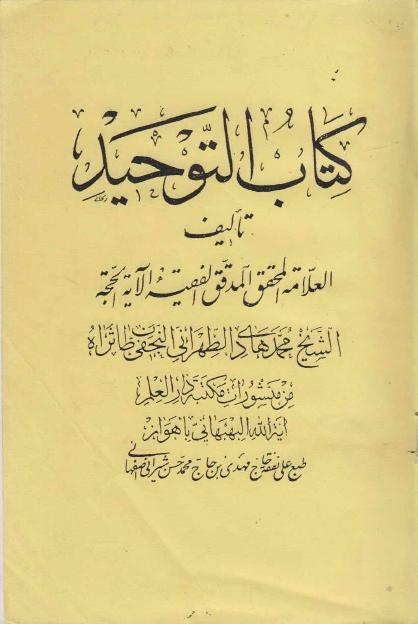 كتاب التّوحيد
تأليف
العلّامة المحقق المدقق الفقيه الآية الحجّة
الشيخ محمد هادي الطهراني النجفي طاب ثراه
من منشورات مكتبة دار العلم
آية الله البهبهاني بأهواز
طبع على نفقة حاج مهدي بن حاج محمد حسن شيرانی اصفهانی